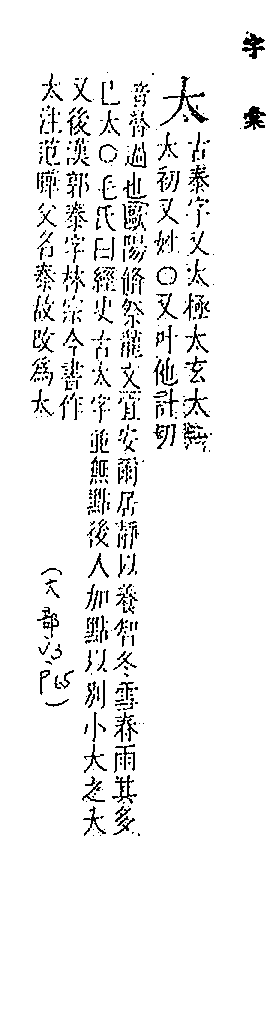 字彙
太
古泰字又太極太玄太虛
太初又姓〇又叶他計切
音替過也歐陽脩祭龍文宜安爾居靜以養智冬雪春雨其多
已太〇毛氏曰經史古太字並無點後人加點以別小大之大
又後漢郭泰字林宗今書作
太注范曄父名泰故改爲太
(大部 V3 P65)